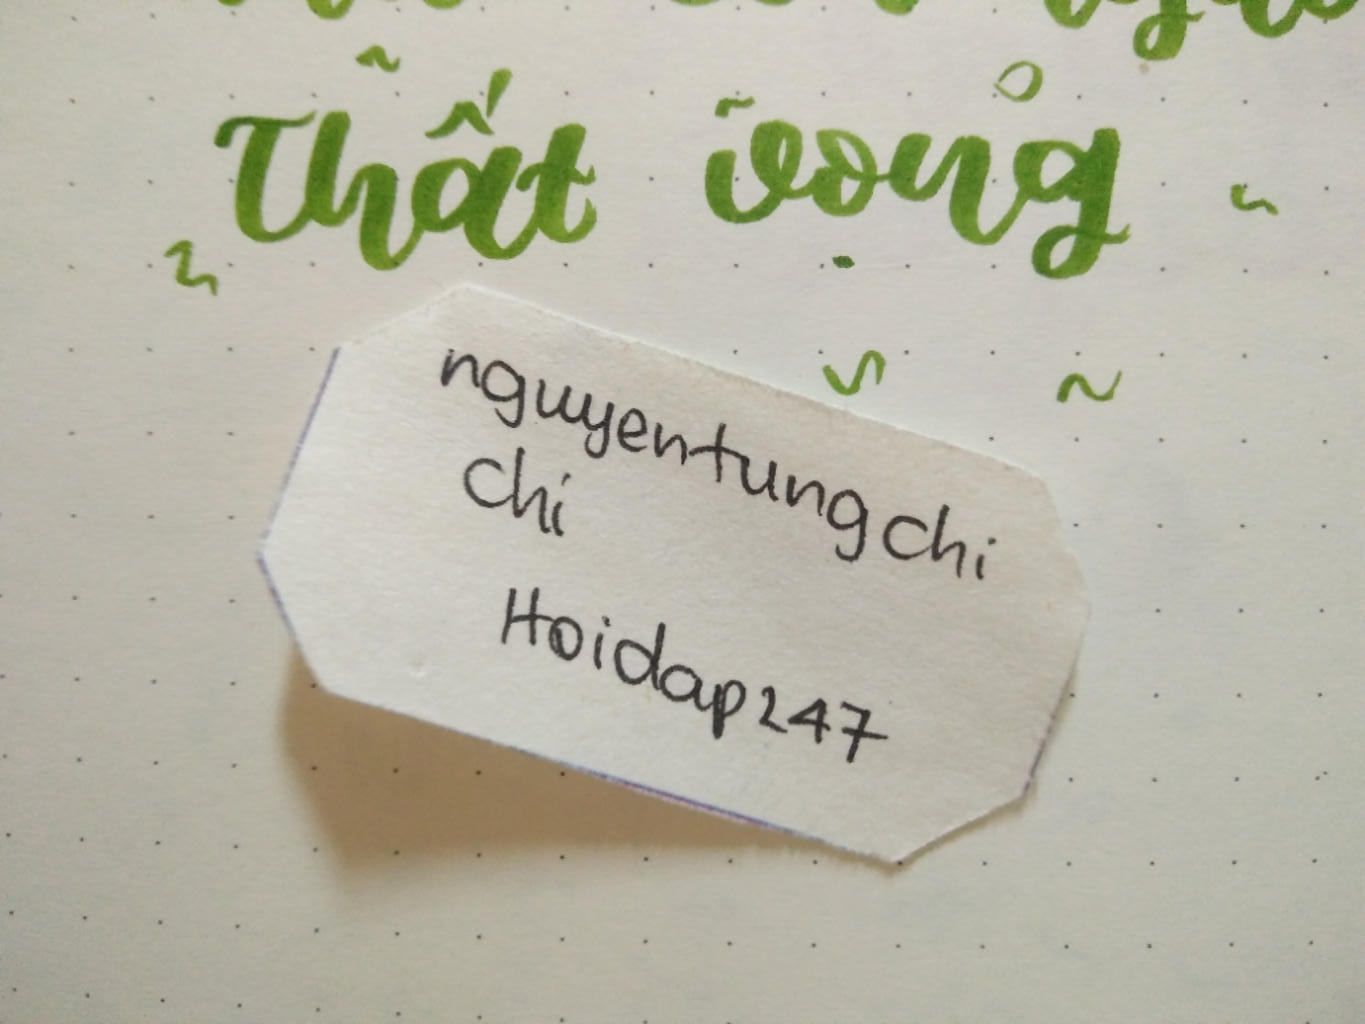 Thất vọng
nguyentungchi
chi
Hoidap247